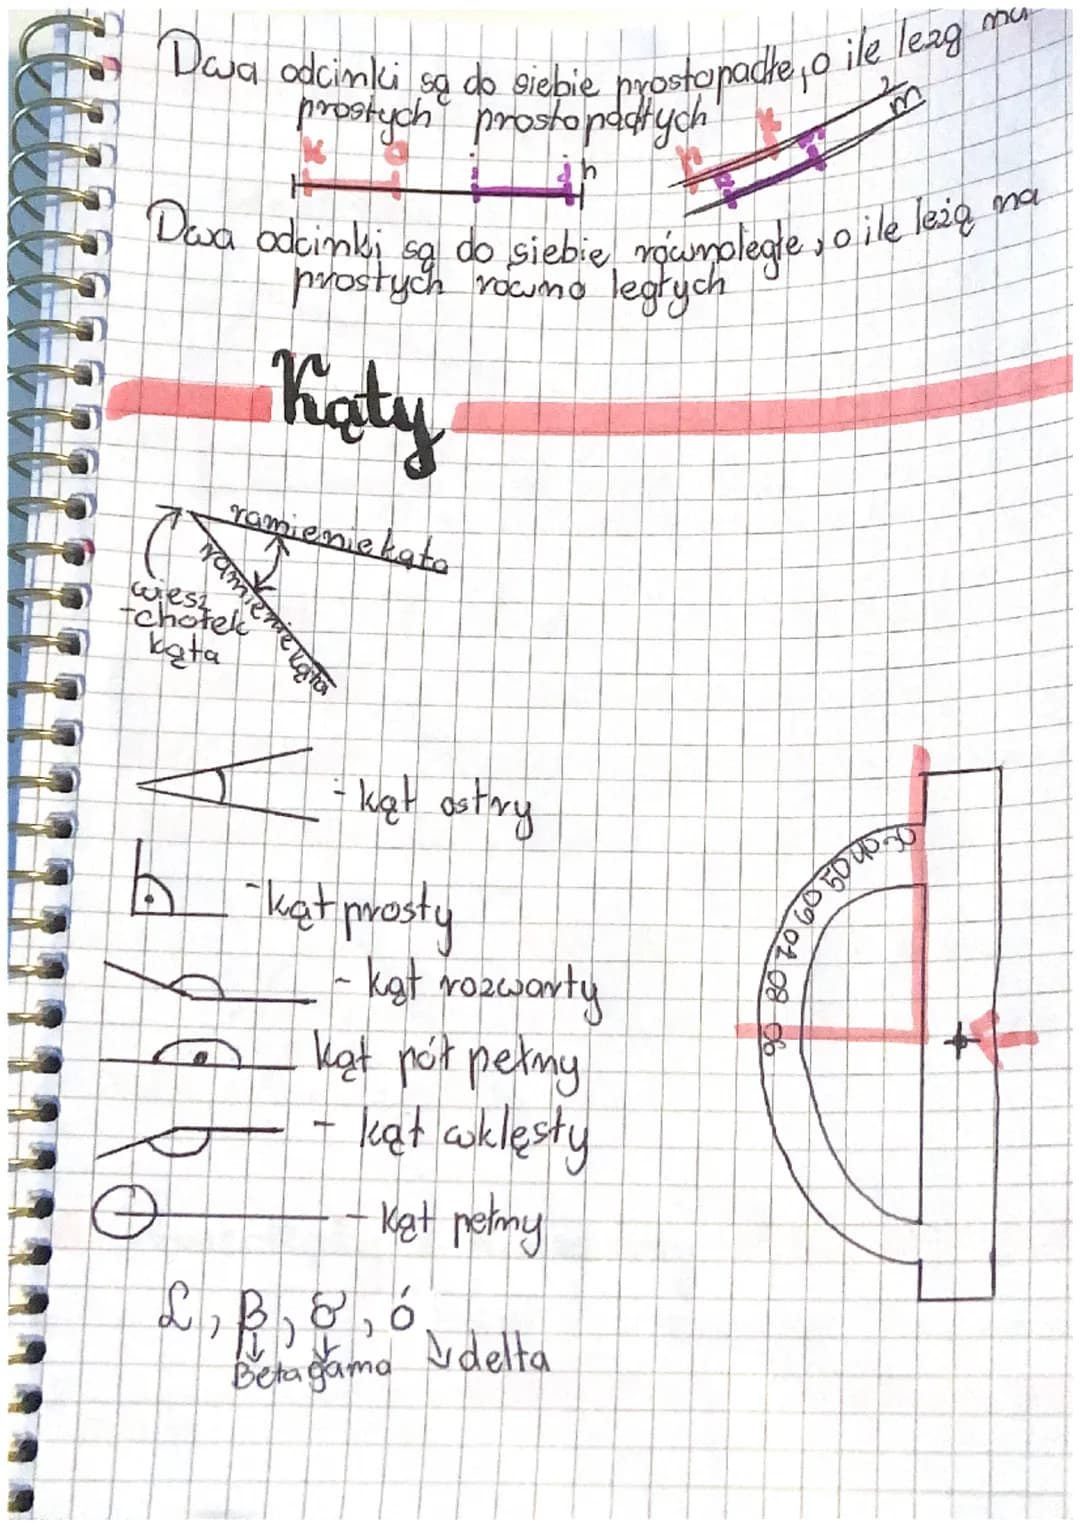 Dwa odcinki są do siebie prostopadłe, o ile leżą na
prostych prostopadłych
K O i j h
n K l m
Dwa odcinki są do siebie równolegle, o ile leżą na
prostych równo ległych
Kąty
ramienie kąta
ramienie kąta
wiesz
-chołek
kąta
- kąt ostry
- kąt prosty
- kąt rozwarty
kąt pół pełny
- kąt wklęsły
- kąt pełny
30 40 50 60 70 80 90
α, β, γ, δ
Beta gama delta